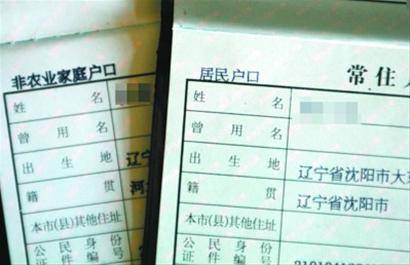 非农业家庭户口
姓 名
曾 用 名
出 生 地 辽宁
籍 贯
本市(县)其他住址
公 民 身 份
证 件 编 号
居民户口
常 住
姓 名
曾 用 名
出 生 地 辽宁省沈阳市大
籍 贯 辽宁省沈阳市
本市(县)其他住址
公 民 身 份
证 件 编 号